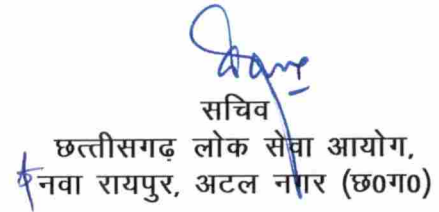 सचिव
छत्तीसगढ़ लोक सेवा आयोग,
नवा रायपुर, अटल नगर (छ0ग0)